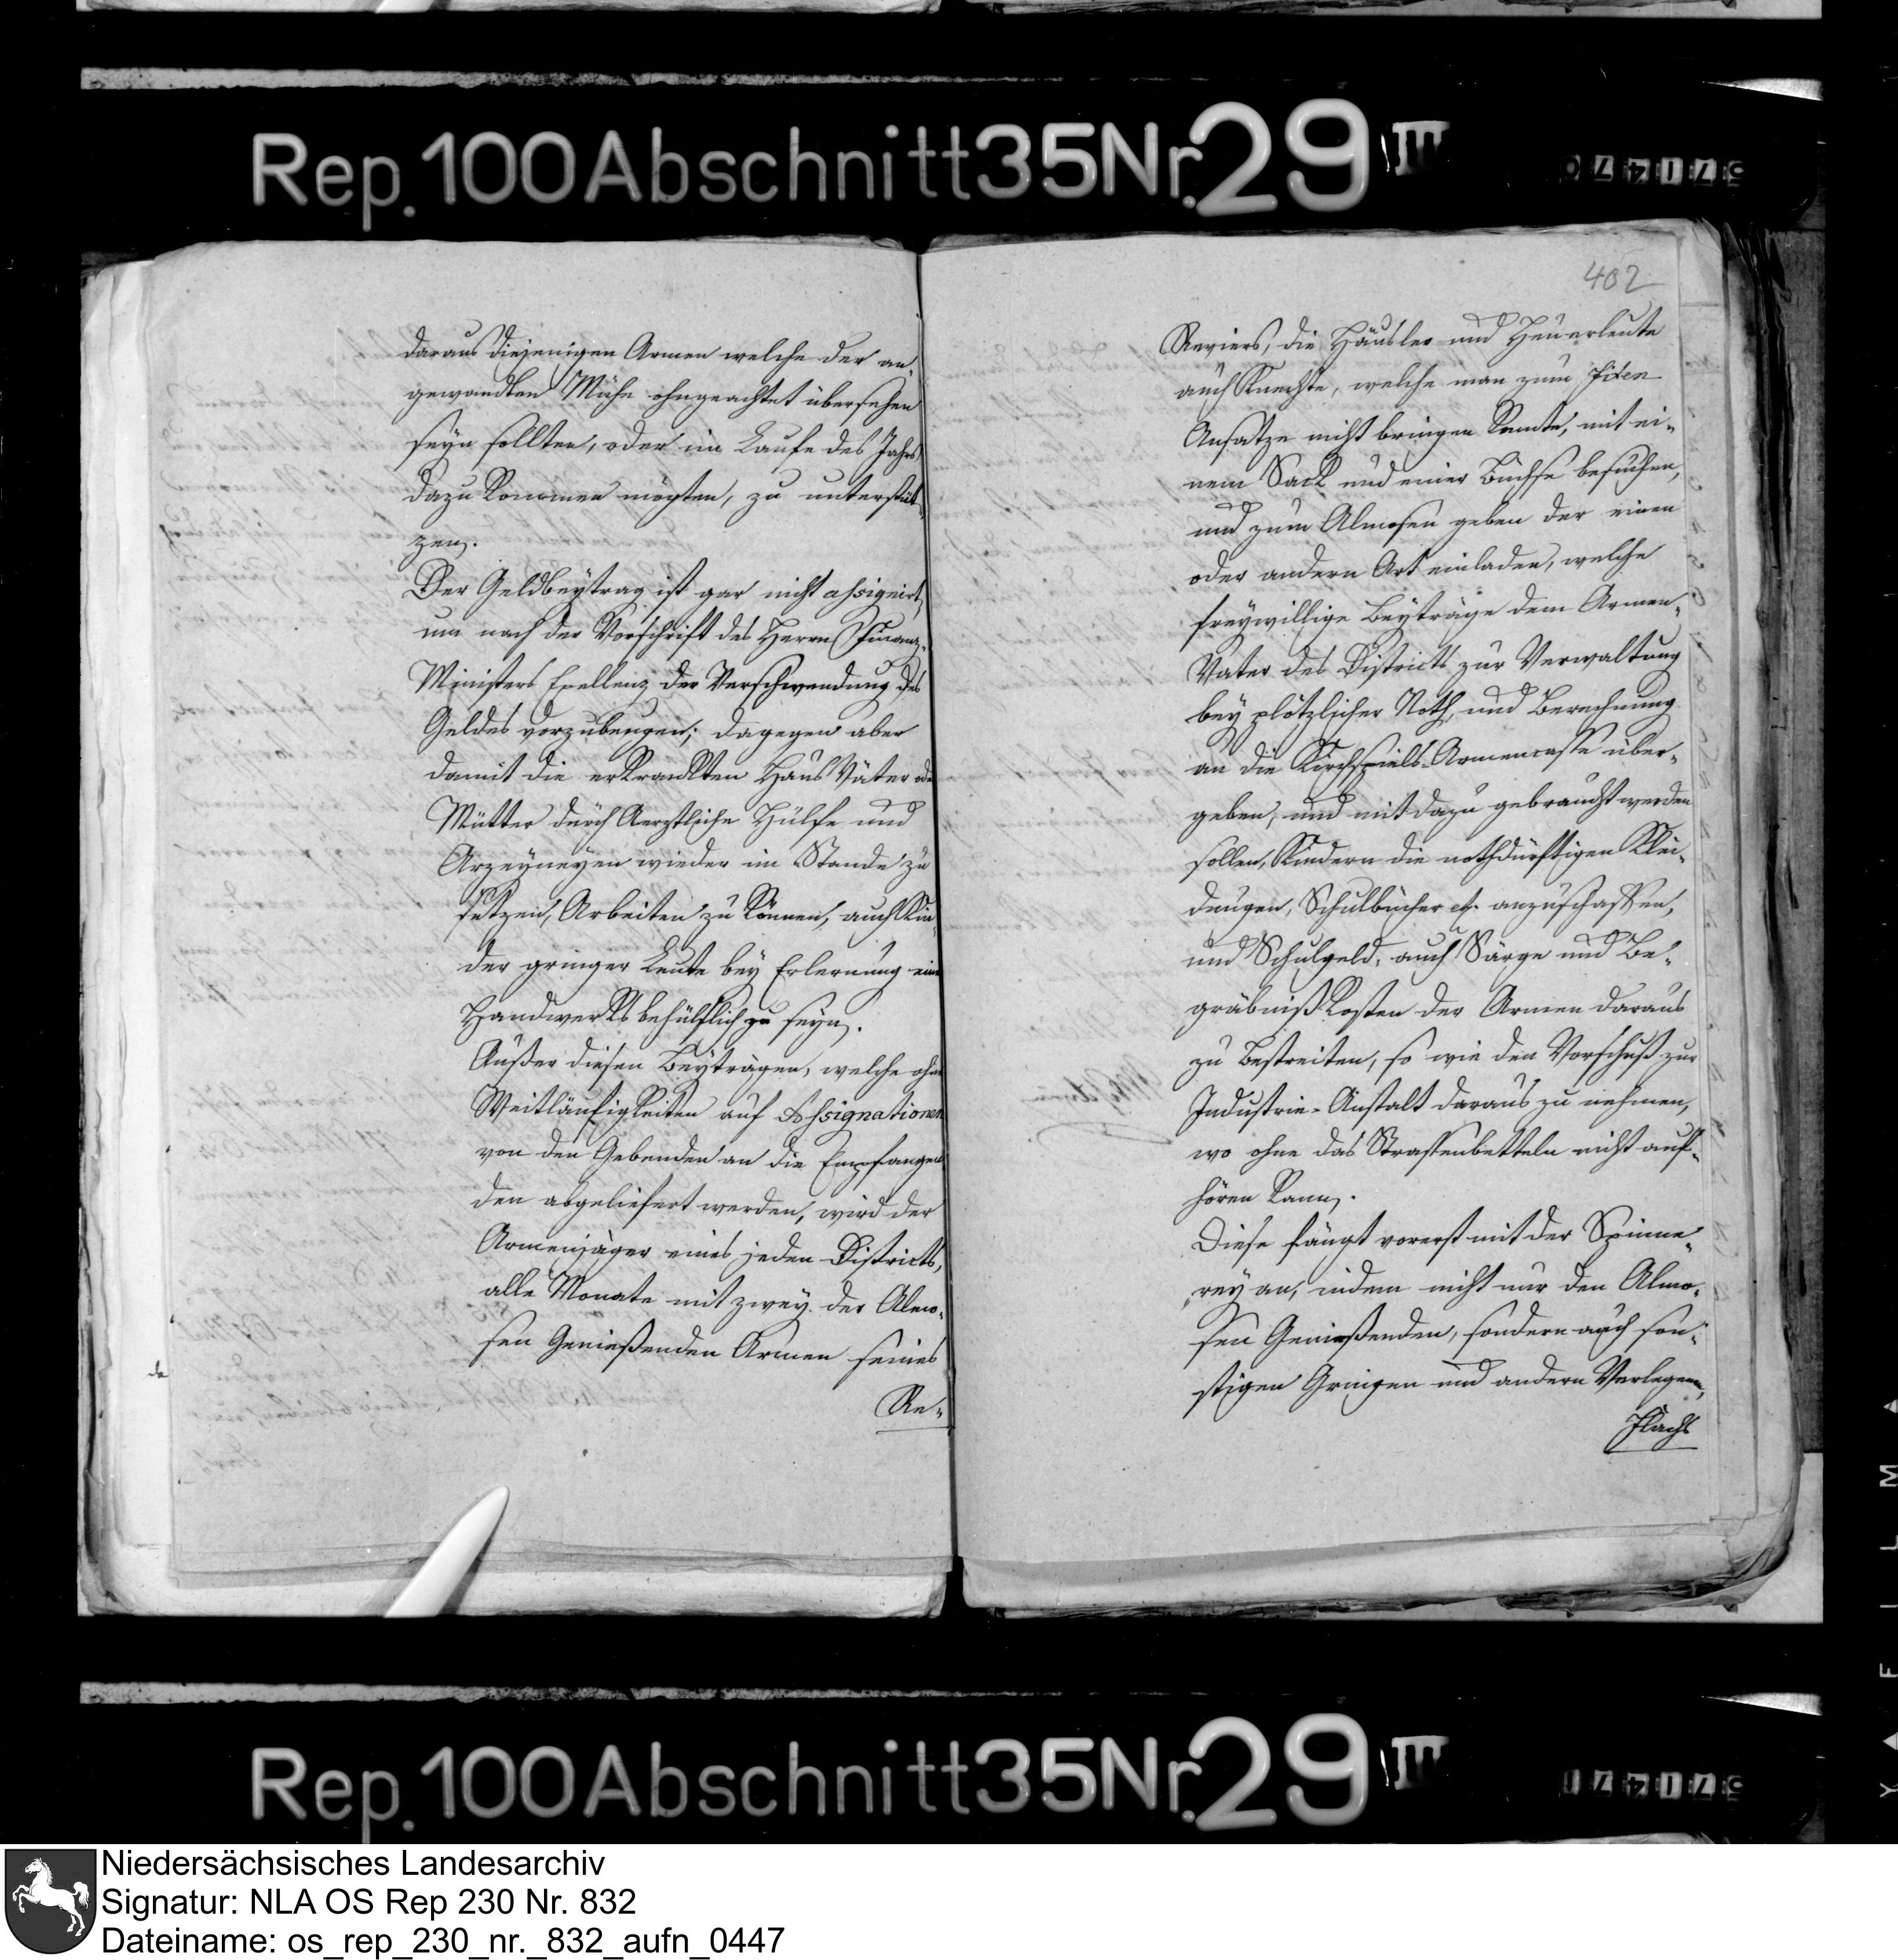 Rep. 100 Abschnitt 35 Nr. 29 III
daraus diejenigen Armen welche der an-
gewandten Mühe ohngeachtet übersehen
seyn sollten, oder im Laufe des Jahrs
dazu kommen mögten, zu unterstüt-
zen.
Der Geldbeytrag ist gar nicht assignirt,
um nach der Vorschrift des Herrn Finanz-
Ministers Exellenz der Verschwendung des
Geldes vorzubeugen; dagegen aber
damit die erkrankten Haus Väter od
Mütter durch Aerztliche Hülfe und
Arzeyneyen wieder im Stande zu
setzen, Arbeiten zu können, auch Kin-
der gringer Leute bey Erlernung ein
Handwerks behülflich zu seyn.
Außer diesen Beyträgen, welche ohne
Weitläufigkeiten auf Assignationen
von den Gebenden an die Empfangen
den abgeliefert werden, wird der
Armenjäger eines jeden Districts,
alle Monate mit zwey der Almo-
sen Genießenden Armen seines
Re-
402
Reviers, die Häusler und Heuerleute
auch Knechte, welche man zum fixen
Ansatze nicht bringen konnte, mit ei-
nem Sack und einer Büchse besuchen,
und zum Almosen geben der einen
oder andern Art einladen, welche
freywillige Beyträge dem Armen-
Vater des Districts zur Verwaltung
bey plötzlicher Noth, und Berechnung
an die Kirchspiels-Armencasse über-
geben, und mit dazu gebraucht werden
sollen, Kindern die nothdürftigen Klei-
dungen, Schulbücher etc. anzuschaffen,
und Schulgeld, auch Särge und Be-
gräbniß kosten der Armen daraus
zu Bestreiten, so wie den Vorschuß zur
Industrie-Anstalt daraus zu nehmen,
wo ohne das Strassenbetteln nicht auf-
hören kann.
Diese fängt vorerst mit der Spinne-
rey an, indem nicht nur den Almo-
sen Genießenden, sondern auch son-
stigen Gringen und andern Verlegenen,
Flachs
Rep. 100 Abschnitt 35 Nr. 29 III
Niedersächsisches Landesarchiv
Signatur: NLA OS Rep 230 Nr. 832
Dateiname: os_rep_230_nr._832_aufn_0447